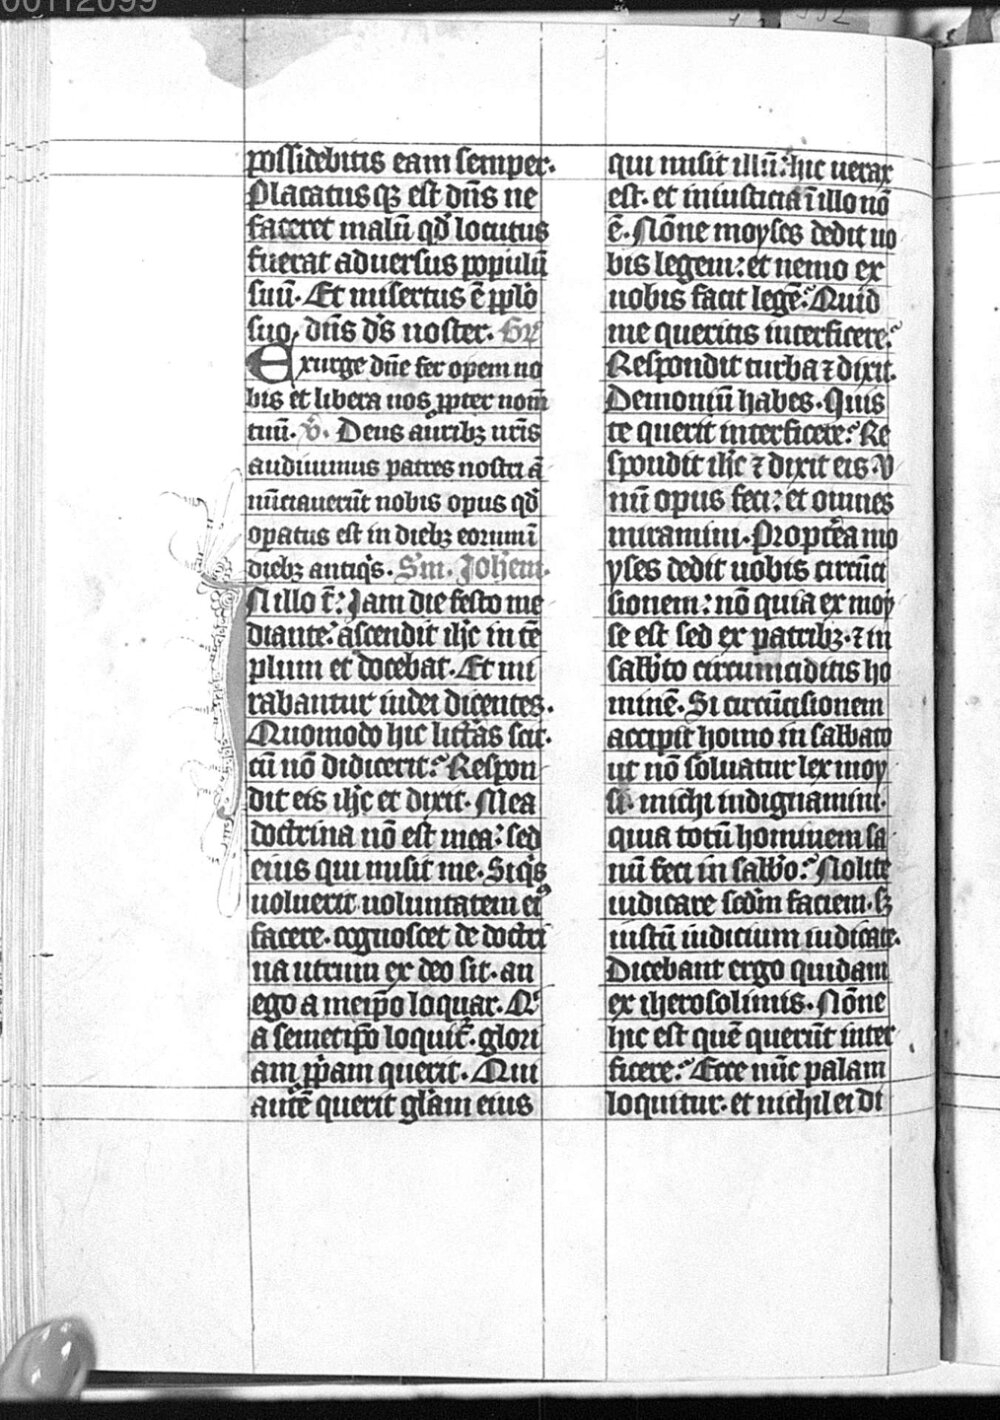 00112099
possidebitis eam semper.
Placatusqꝫ est dn̄s ne
faceret malū qd̓ locutus
fuerat adversus populū
suū. Et misertus ē pp̄lo
suo, dn̄s ds̄ noster. Gr̄
Exurge dn̄e fer opem no
bis et libera nos ꝓpter nom̄
tuū. v̓. Deus aurib̄ꝫ nr̄is
audivimus patres nostri ā
nūctaverūt nobis opus qd̓
oꝑatus est in diebꝫ eorum ī
diebꝫ antiqis. Sm̄. Joh̄em.
N illo t̄: Jam die festo me
diante: ascendit ih̄c in tē
plum et docebat. Et mi
rabantur iudei dicentes.
Quomodo hic litt̄as scit.
cū nō didicerit: Respon
dit eis ih̄c et dixit. Mea
doctrina nō est mea: sed
eius qui misit me. Siqis
voluerit voluntatem eiꝰ
facere. cognoscet de doctri
na utrum ex deo sit. an
ego a meip̄o loquar. Qi
a semetip̄o loquit᷑. glori
am ꝓp̄am querit. Qui
autē querit gl̄am eius
qui misit illū: hic verax
est. et iniusticia ī illo nō
ē. Nōne moyses dedit vo
bis legem: et nemo ex
vobis facit legē: Quid
me queritis interficere:
Respondit turba ⁊ dixit.
Demoniū habes. Quis
te querit interficere: Re
spondit ih̄c ⁊ dixit eis. V
nū opus feci: et omnes
miramini. Propt̄ea mo
yses dedit vobis circūci
sionem: nō quia ex moy
se est sed ex patribꝫ. ⁊ in
sabb̄to circumciditis ho
minē. Si circūcisionem
accipit homo in sabbato
ut nō solvatur lex moy
si. michi indignamini.
quia totū hominem sa
nū feci in sabb̄o: Nolite
iudicare scd̄m faciem. sꝫ
iustū iudicium iudicate.
Dicebant ergo quidam
ex iherosolimis. Nōne
hic est quē querūt inter
ficere: Ecce nūc palam
loquitur. et nichil ei di